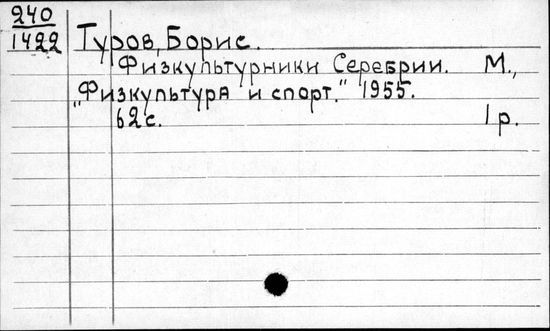 240
1422
Туров, Борис.
Физкультурники Серебрии. М.,
"Физкультура и спорт." 1955.
62с. 1р.